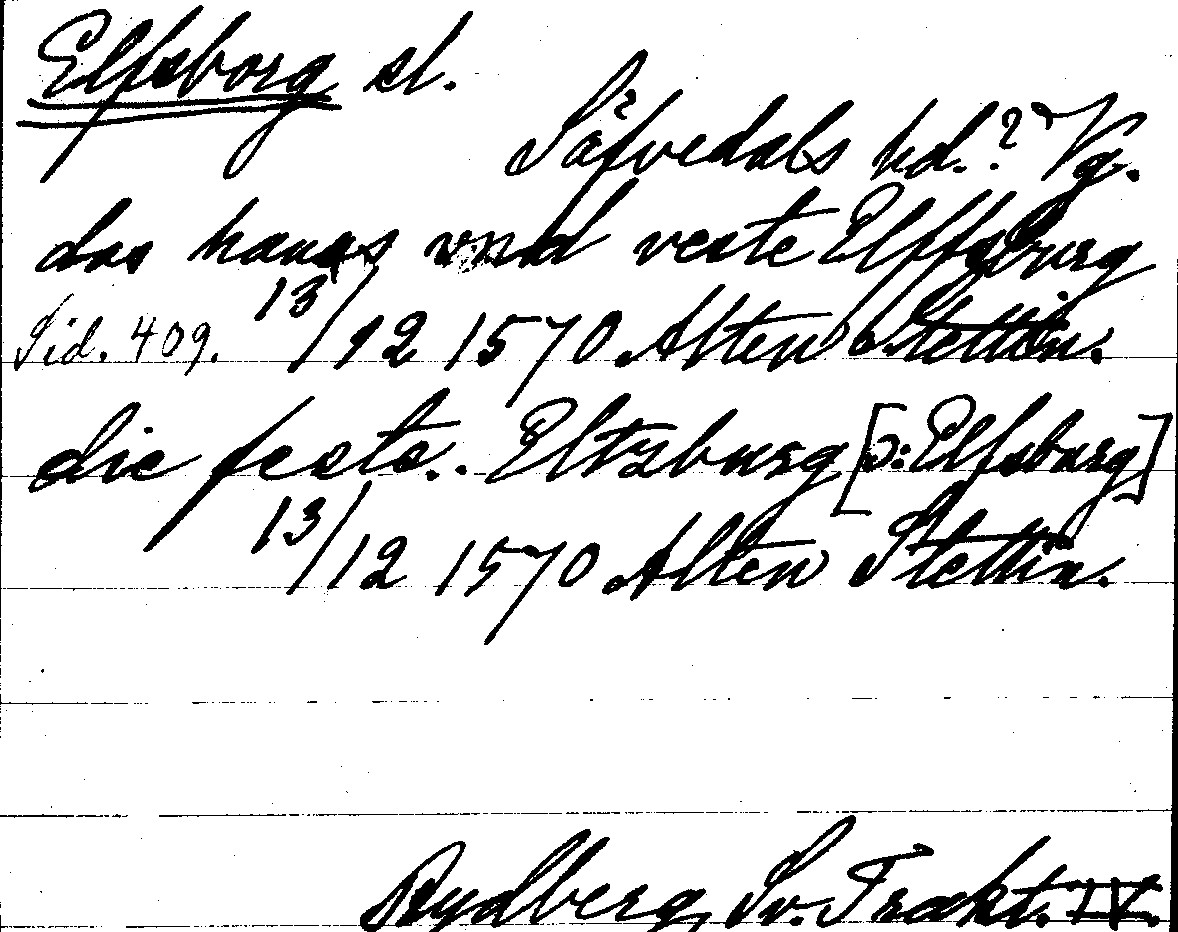 Elfsborg sl.
Säfvedals hd.? Vg.
das hauss vnd veste Elffsburg
Sid. 409. 13/12 1570 Alten Stettin.
die feste.. Eltzburg [ɔ: Elfsburg]
13/12 1570 Alten Stettin.
Rydberg, Sv. Trakt. IV.